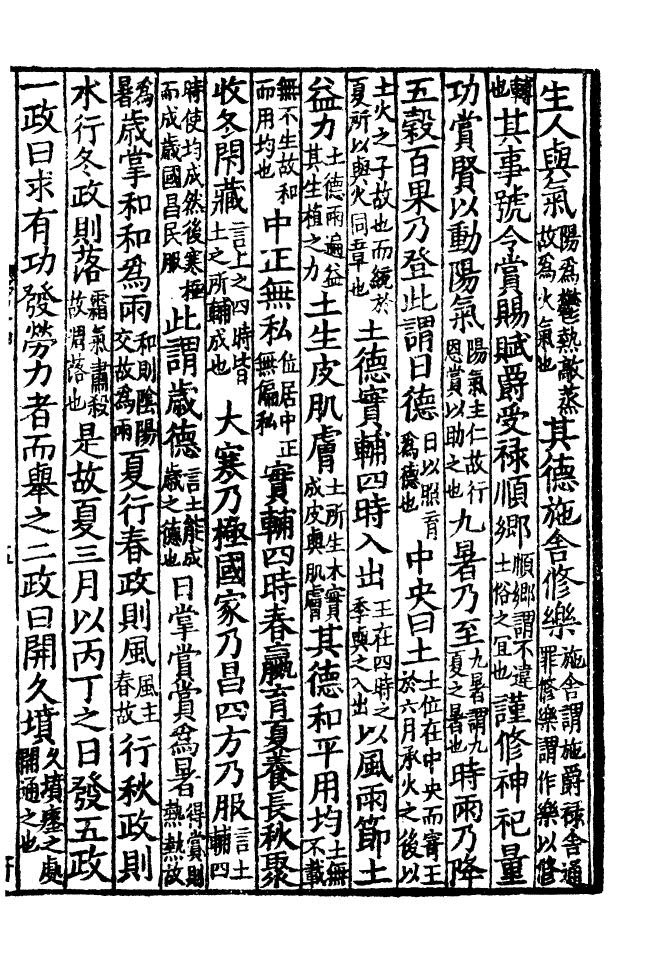 生人與氣陽為鬱熱敲蒸故為火氣也其德施舍修樂施舍謂施爵祿舍通罪修樂謂作樂以修
輔也其事號令賞賜賦爵受祿順鄉順鄉謂不違土俗之宜也謹修神祀量
功賞賢以動陽氣陽氣主仁故行恩賞以助之也九暑乃至九暑謂九夏之暑也時雨乃降
五穀百果乃登此謂日德日以照育為德也中央曰土土位在中央而寄王於六月承火之後以
土火之子故也而統於夏所以與火同章也土德實輔四時入出王在四時之季與之入出以風雨節土
益力土德雨遍益其生植之力土生皮肌膚土所生木實成皮與肌膚其德和平用均土無不載
無不生故和而用均也中正無私位居中正無偏私實輔四時春嬴育夏養長秋聚
收冬閉藏言上之四時皆土之所輔成也大寒乃極國家乃昌四方乃服言土輔四
時使均成然後寒極而成歲國昌民服此謂歲德言土能成歲之德也日掌賞賞為暑得賞則熱熱故
為暑歲掌和和為雨和則陰陽交故為雨夏行春政則風風主春故行秋政則
水行冬政則落霜氣肅殺故凋落也是故夏三月以丙丁之日發五政
一政曰求有功發勞力者而舉之二政曰開久墳久墳壅之處開通之也